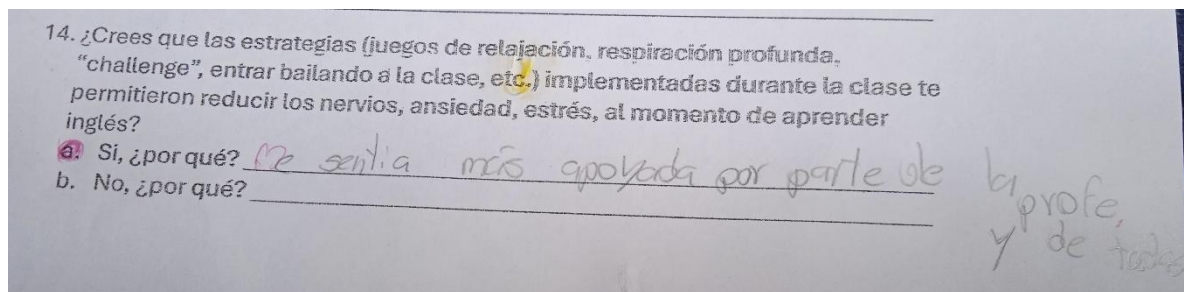 14. ¿Crees que las estrategias (juegos de relajación, respiración profunda,
“challenge”, entrar bailando a la clase, etc.) implementadas durante la clase te
permitieron reducir los nervios, ansiedad, estrés, al momento de aprender
inglés?
a. Si, ¿por qué? Me sentía más apoyada por parte de la
profe,
y de todos
b. No, ¿por qué?